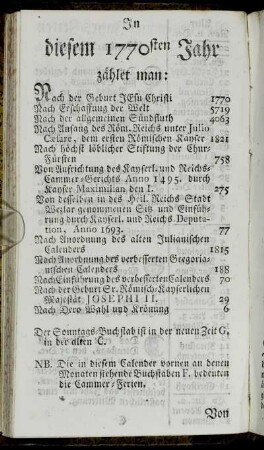 In
diesem 1770sten Jahr
zählet man:
Nach der Geburt JEsu Christi 1770
Nach Erschaffung der Welt 5719
Nach der allgemeinen Sündfluth 4063
Nach Anfang des Röm. Reichs unter Julio
Cæsare, dem ersten Römischen Kayser 1821
Nach höchst löblicher Stiftung der Chur-
Fürsten 758
Von Aufrichtung des Kayserl. und Reichs-
Cammer-Gerichts Anno 1495. durch
Kayser Maximilian den I. 275
Von desselben in des Heil. Reichs Stadt
Wezlar genommenen Sitz und Einfüh-
rung durch Kayserl. und Reichs Deputa-
tion, Anno 1693. 77
Nach Anordnung des alten Julianischen
Calenders 1815
Nach Anordnung des verbesserten Gregoria-
nischen Calenders 188
Nach Einführung des verbesserten Calenders 70
Nach der Geburt Sr. Römisch-Kayserlichen
Majestät JOSEPHI II. 29
Nach Dero Wahl und Krönung 6
Der Sonntags-Buchstab ist in der neuen Zeit G,
in der alten C.
NB. Die in diesem Calender vornen an denen
Monaten stehende Buchstaben F. bedeuten
die Cammer-Ferien.
Von